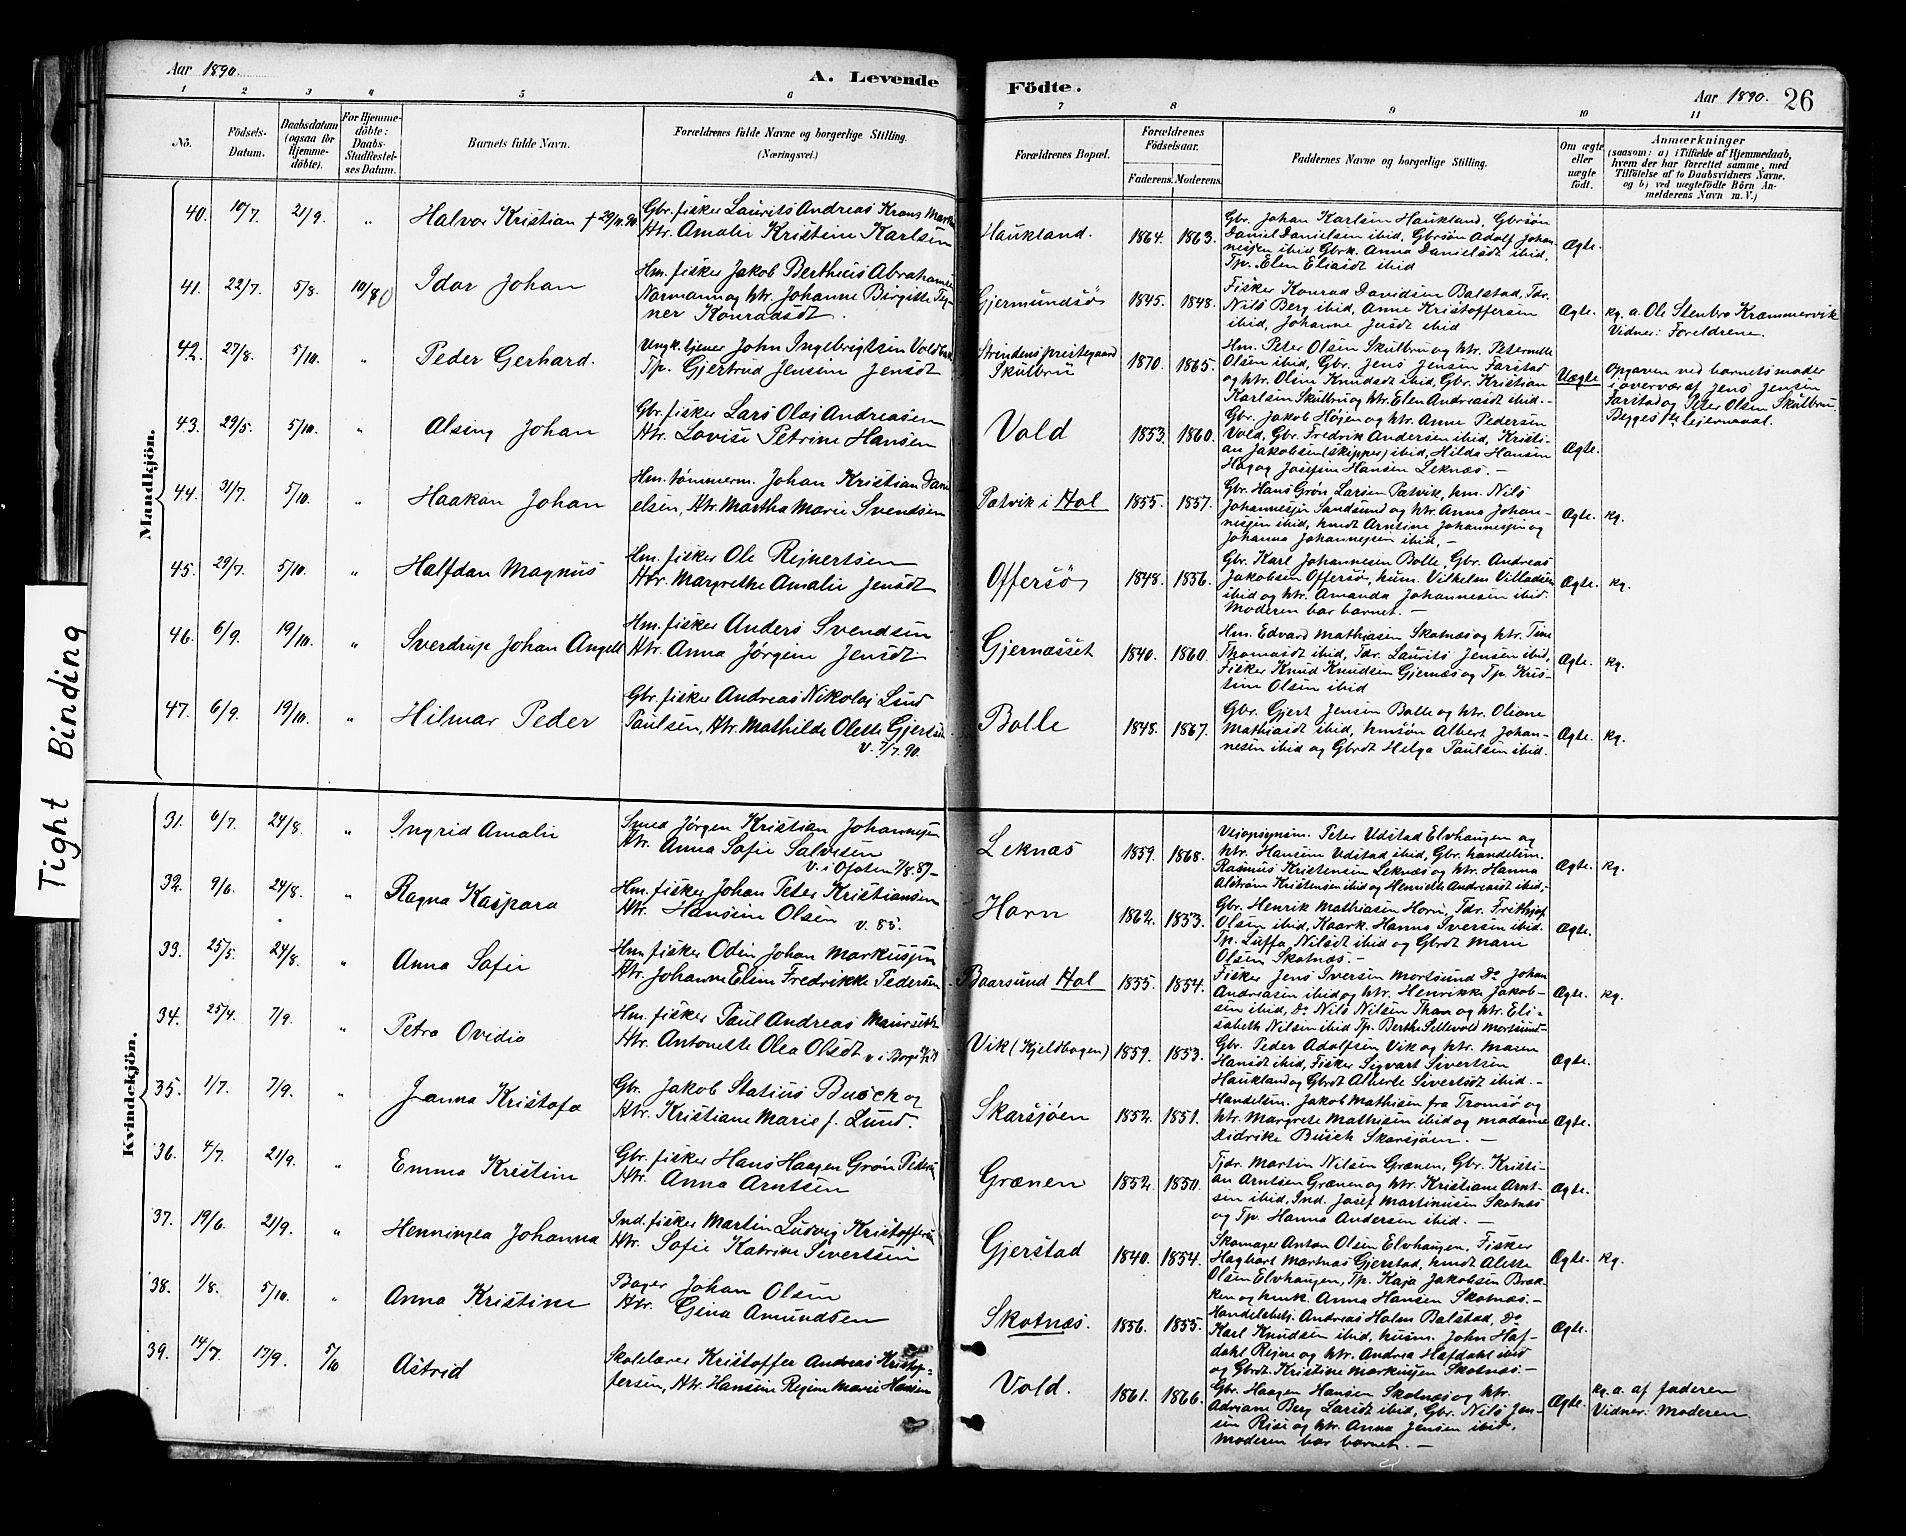 Aar 1890.
A. Levende
Födte.
Aar 1890. 26
1 2 3 4 5 6 7 8 9 10 11
No.
Födsels-Datum.
Daabsdatum (ogsaa for Hjemmedöbte).
For Hjemmedöbte: Daabs-Stadfestelses Datum.
Barnets fulde Navn.
Forældrenes fulde Navne og borgerlige Stilling.
(Næringsvei.)
Forældrenes Bopæl.
Forældrenes Födselsaar.
Faderens. Moderens.
Faddernes Navne og borgerlige Stilling.
Om ægte eller uægte født.
Anmærkninger
(saasom: a) i Tilfælde af Hjemmedaab, hvem der har forrettet samme, med Tilföielse af to Daabsvidners Navne, og b) ved uægtefödte Börn Anmelderens Navn m. V.)
Mandkjön.
40. 10/7. 21/9. " Halvor Kristian † 29/11.90
Gbr. fisker Laurits Andreas Krans
Htr. Amalie Kristine Karlsen
Haukland. 1864. 1863.
Gbr. Johan Karlsen Haukland, Gbrsøn
Daniel Danielsen ibid, Gbrsøn Adolf Johan-
nesen ibid Gbrk. Anna Danielsdt ibid,
Tp. Elen Eliasdt ibid
Ægte.
41. 22/7. 5/8. 10/8 Idar Johan
Hm. fisker Jakob Berthius Abrahamsen
Normann og htr. Johanne Birgitte Teg-
ner Konradsdt.
Gjermundsø 1845. 1848.
Fisker Konrad Davidsen Balstad, Tdr.
Nils Berg ibid, Anne Kristoffersen
ibid, Johanne Jensdt ibid
Ægte. kg. a. Ole Stenbro Kræmmervik
Vidner: Foreldrene.
42. 27/8. 5/10. " Peder Gerhard.
Ungk. tjener John Ingebrigtsen
Tp. Gjertrud Jensen Jensdt
Strindens prestegaard
Skulbru 1870. 1865.
Hm. Peter Olsen Skulbru og htr. Peternelle
Olsen ibid, Gbr. Jens Jensen Farstad
og htr. Oline Knudsdt ibid, Gbr. Kristian
Karlsen Skulbru og htr. Elen Andreasdt ibid.-
Uægte Opgaven ved barnets moder
i overvær af Jens Jensen
Farstad og Peter Olsen Skulbru.
Begges 1ste leiermaal.
43. 29/5. 5/10. " Alsing Johan
Gbr. fisker Lars Olai Andreasen
Htr. Lovise Petrine Hansen
Vold 1853. 1860.
Gbr. Jakob Højen og htr. Anne Pedersen
Vold, Gbr. Fredrik Andersen ibid, Kristi-
an Jakobsen (skipper) ibid, Hilda Hansen
Hag og Josefine Hansen Leknæs.-
Ægte.
44. 31/7. 5/10. " Haakon Johan
Hm. tømmerm. Johan Kristian Dani-
elsen, Htr. Martha Marie Svendsen
Petvik i Hol 1855. 1857.
Gbr. Hans Grøn Larsen Petvik, hm. Nils
Johannesen Sandsund og htr. Anna Johan-
nesen ibid, hmdt Arntine Johannesen og
Johanna Johannesen ibid.-
Ægte. kg.
45. 29/7. 5/10. " Halfdan Magnus
Hm. fisker Ole Rejnertsen
Htr. Margrethe Amalie Jensdt
Offersø 1848. 1856.
Gbr. Karl Johannesen Bolle, Gbr. Andreas
Jakobsen Offersø, husm. Vilhelm Villadsen
ibid og htr. Amanda Johannesen ibid.
Moderen bar barnet.-
Ægte. kg.
46. 6/9. 19/10. " Sverdrup Johan Angell
Hm. fisker Anders Svendsen
Htr. Anna Jørgine Jensdt.
Gjernæsset 1840. 1860.
Hm. Edvard Mathiasen Skotnæs og htr. Tine
Thomasdt ibid, Tdr. Laurits Jensen ibid,
Fisker Knud Knudsen Gjernæs og Tp. Kris-
tine Olsen ibid
Ægte. kg.
47. 6/9. 19/10. " Hilmar Peder
Gbr. fisker Andreas Nikolaj Lund
Paulsen, Htr. Mathilde Olette Gjertsen
V. 7/7.90.
Bolle 1848. 1867.
Gbr. Gjert Jensen Bolle og htr. Oliane
Mathiasdt ibid, hmsøn Albert Johan-
nesen ibid og Gbrdt Helga Paulsen ibid.
Ægte. kg.
Kvindekjön.
31. 6/7. 24/8. " Ingrid Amalie
Smed Jørgen Kristian Johannesen
Htr. Anna Sofie Salvesen
V. i Ofoten 7/8.87-
Leknæs 1859. 1868.
Veiopsynsm. Peter Udstad Elvhaugen og
htr. Hansine Udstad ibid, Gbr. handelsm.
Rasmus Kristensen Leknæs og htr. Hanna
Alstrøm Kristensen ibid og Henriette Andreasdt ibid.-
Ægte. kg.
32. 9/6. 24/8. " Ragna Kaspara
Hm. fisker Johan Peter Kristiansen
Htr. Hansine Olsen V. 85.
Horn 1862. 1853.
Gbr. Henrik Mathiasen Horn, Tdr. Frithjof
Olsen ibid, Kaark. Hanna Iversen ibid.
Tp. Luffa Nilsdt ibid og Gbrdt Marie
Olsen Skotnæs.-
Ægte.
33. 25/5. 24/8. " Anna Sofie
Hm fisker Odin Johan Markussen
Htr. Johanne Eline Fredrikke Pedersen
Baarsund Hol 1855. 1854.
Fisker Jens Iversen Mortsund Do Johan
Andreasen ibid og htr. Henrikke Jakob-
sen ibid, Do Nils Nilsen Than og htr. Eli-
sabeth Nilsen ibid Tp. Berthe Settevold Mortsund
Ægte. kg.
34. 25/4. 7/9. " Petra Ovidia
Hm. fisker Paul Andreas Maurseth
Htr. Antonette Olea Olsdt
Vik (Kjeldbogen) 1859. 1853.
Gbr. Peder Adolfsen Vik og htr. Maren
Hansdt ibid, Fisker Sigvart Sivertsen
Haukland og Gbrdt Alberte Sivertsdt ibid.-
Ægte.
35. 1/7. 7/9. " Janna Kristofa
Gbr. Jakob Statius Busch og
Htr. Kristiane Marie f. Lund.
Skarsjøen 1852. 1851.
Handelsm. Jakob Mathisen fra Tromsø og
htr. Margrete Mathisen ibid og madame
Didrike Busch Skarsjøen.-
Ægte.
36. 4/7. 21/9. " Emma Kristine
Gbr. fisker Hans Haagen Grøn Peders
Htr. Anna Arntsen
Grænen 1852. 1850.
Tjdr. Martin Nilsen Grænen, Gbr. Kristi-
an Arntsen Grænen og htr. Kristiane Arnt-
sen ibid, Ind. Josef Martinusen Skotnæs
og Tp. Hanna Andersen ibid.-
Ægte.
37. 19/6. 21/9. " Henningea Johanna
Ind. fisker Martin Ludvig Kristoffersen
Htr. Sofie Katrine Sivertsen
Gjerstad 1840. 1854.
Skomager Anton Olsen Elvhaugen, Fisker
Hagbart Martnæs Gjerstad, hmdt Alette
Olsen Elvhaugen, Tp. Kaja Jakobsen Brek-
ken og hmk. Anna Hansen Skotnæs.-
Ægte. kg.
38. 1/8. 5/10. " Anna Kristine
Bager Johan Olsen
Htr. Gina Amundsen
Skotnæs. 1856. 1855.
Handelsbetj. Andreas Holen Balstad, Do
Karl Knudsen ibid, husm. John Haf-
dahl Rejne og htr. Andrea Hafdahl ibid
og Gbrdt. Kristine Markusen Skotnæs.-
Ægte.
39. 14/7. 17/9. 5/10 Astrid
Skolelærer Kristoffer Andreas Kristof-
fersen, Htr. Hansine Regine Marie Hansen
Vold. 1861. 1866.
Gbr. Haagen Hansen Skotnæs og htr.
Adriane Berg Larsdt ibid, Gbr. Nils Jen-
sen Rise og htr. Anna Jensen ibid.
Moderen bar barnet.-
Ægte. kg. a. af faderen
Vidner: Moderen
Tight Binding